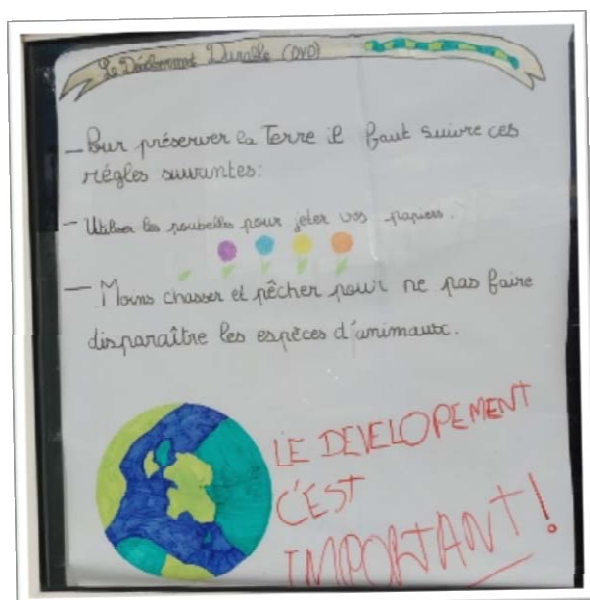 Le Développement Durable (DVD)
– Pour préserver la Terre il faut suivre ces
régles suivantes:
– Utiliser les poubelles pour jeter vos papiers.
– Moins chasser et pêcher pour ne pas faire
disparaître les espèces d'animaux.
LE DEVELOPEMENT
C'EST
IMPORTANT!